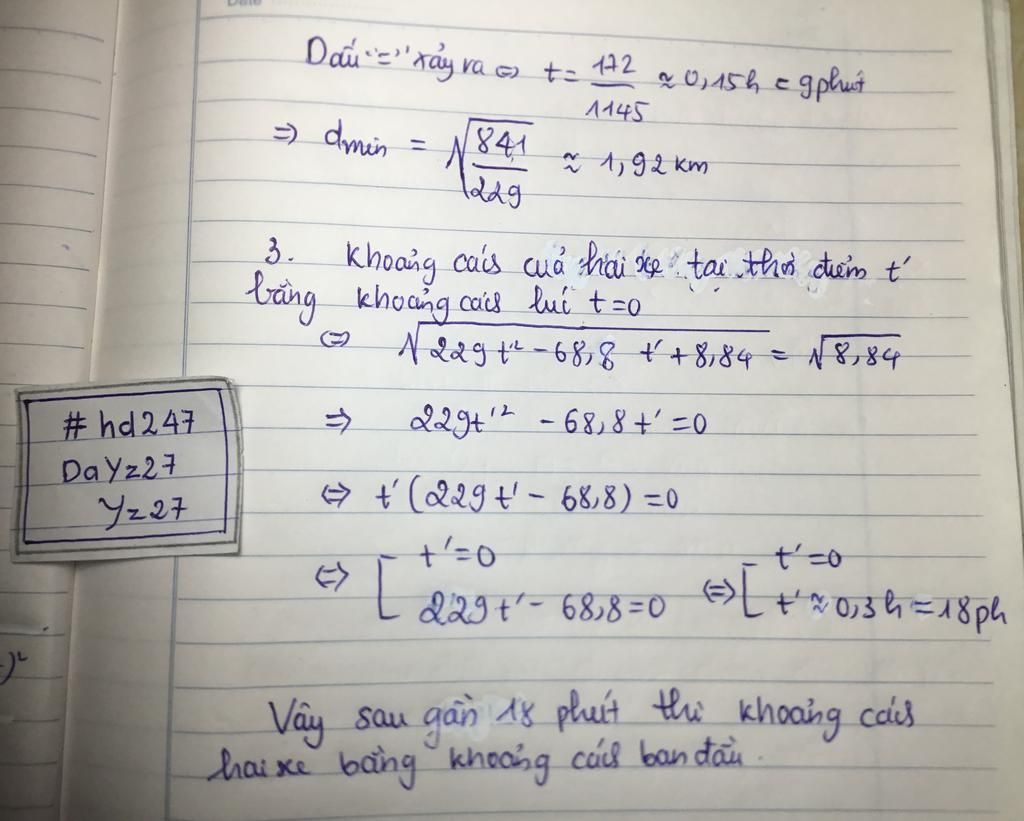 Dấu "=" xảy ra ⇔ t = 172/1145 ≈ 0,15h = 9 phút
⇒ dmin = √(841/229) ≈ 1,92 km
3. Khoảng cách của hai xe tại thời điểm t'
bằng khoảng cách lúc t=0
⇔ √(229t'² - 68,8 t' + 8,84) = √8,84
⇒ 229t'² - 68,8t' = 0
⇔ t'(229t' - 68,8) = 0
⇔ [ t'=0 ⇔ [ t'=0
229t' - 68,8 = 0 t' ≈ 0,3h = 18ph
Vậy sau gần 18 phút thì khoảng cách
hai xe bằng khoảng cách ban đầu.
#hd247
DaYz27
Yz27
)²